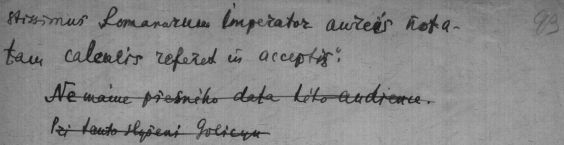 stissimus Romanorum Imperator aureis nota-
tam calculis referet in acceptis".
Nemáme přesného data této audience.
Při tomto slyšení Golicyn
93